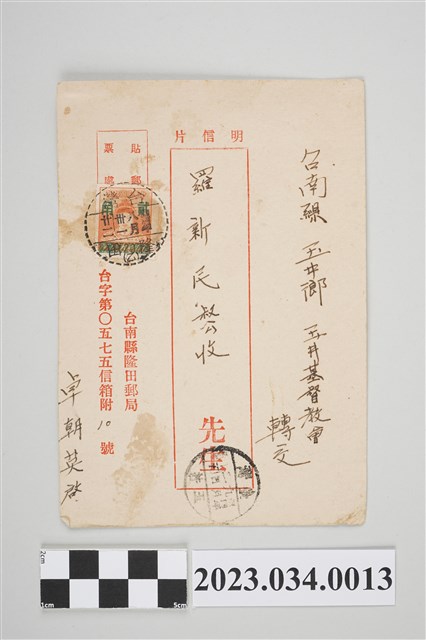 明信片
台南縣 玉井鄉 玉井基督教會
轉交
羅新民
收
先生
貼郵票處
台南縣隆田郵局
台字第〇五七五信箱附10號
卓朝英啓
2cm
1cm
5cm
2023.034.0013